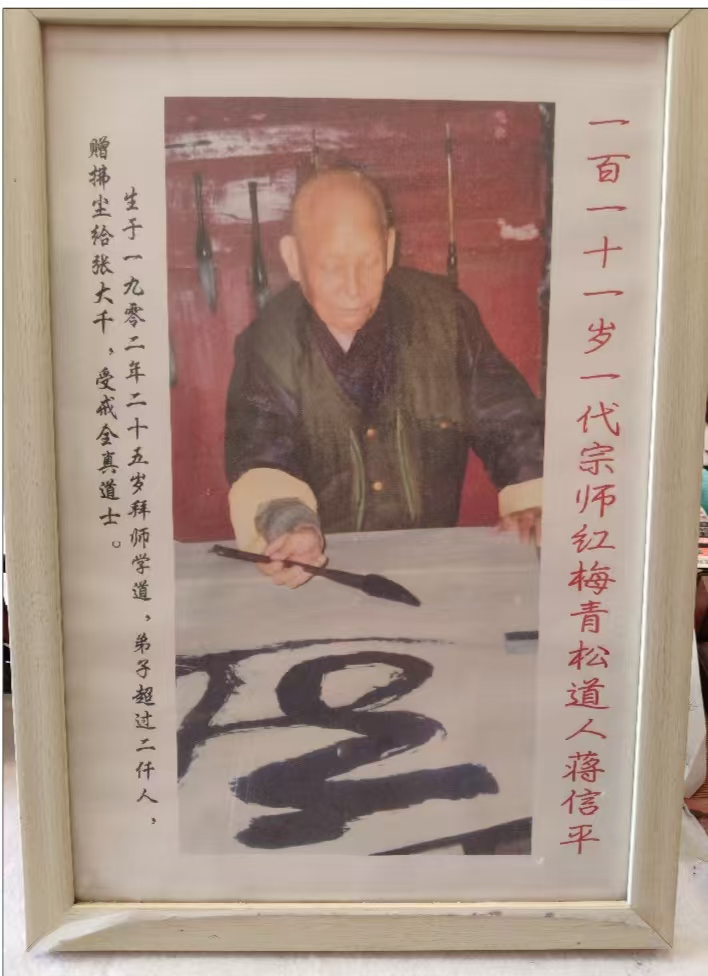 一百一十一岁一代宗师红梅青松道人蒋信平
生于一九零二年二十五岁拜师学道，弟子超过二仟人，
赠拂尘给张大千，受戒全真道士。